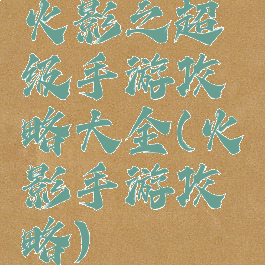 火影之超
级手游攻
略大全(火
影手游攻
略)